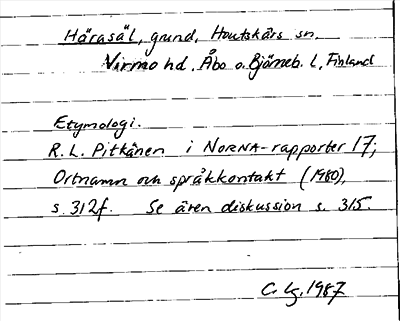 Härasäl, grund, Houtskärs sn,
Virmo hd, Åbo o. Björneb. l, Finland
Etymologi.
R. L. Pitkänen i NORNA-rapporter 17;
Ortnamn och språkkontakt (1980),
s. 312f. Se även diskussion s. 315.
C. Lg. 1987